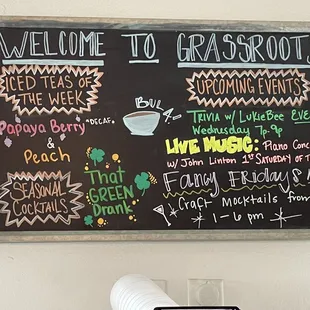 WELCOME TO GRASSROOTS
ICED TEAS OF
THE WEEK
Papaya Berry *DECAF*
&
Peach
SEASONAL
COCKTAILS
That
GREEN
Drank
UPCOMING EVENTS
TRIVIA W/ LUKIEBEE EVE
Wednesday 7p-9p
LIVE MUSIC: PIANO CONC
W/ JOHN LINTON 1ST SATURDAY OF T
FANCY FRIDAYS!
CRAFT MOCKTAILS from
1-6 pm